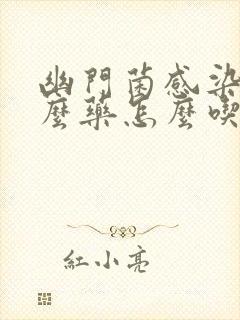 幽門菌感染
麼藥怎麼喫
紅小亮